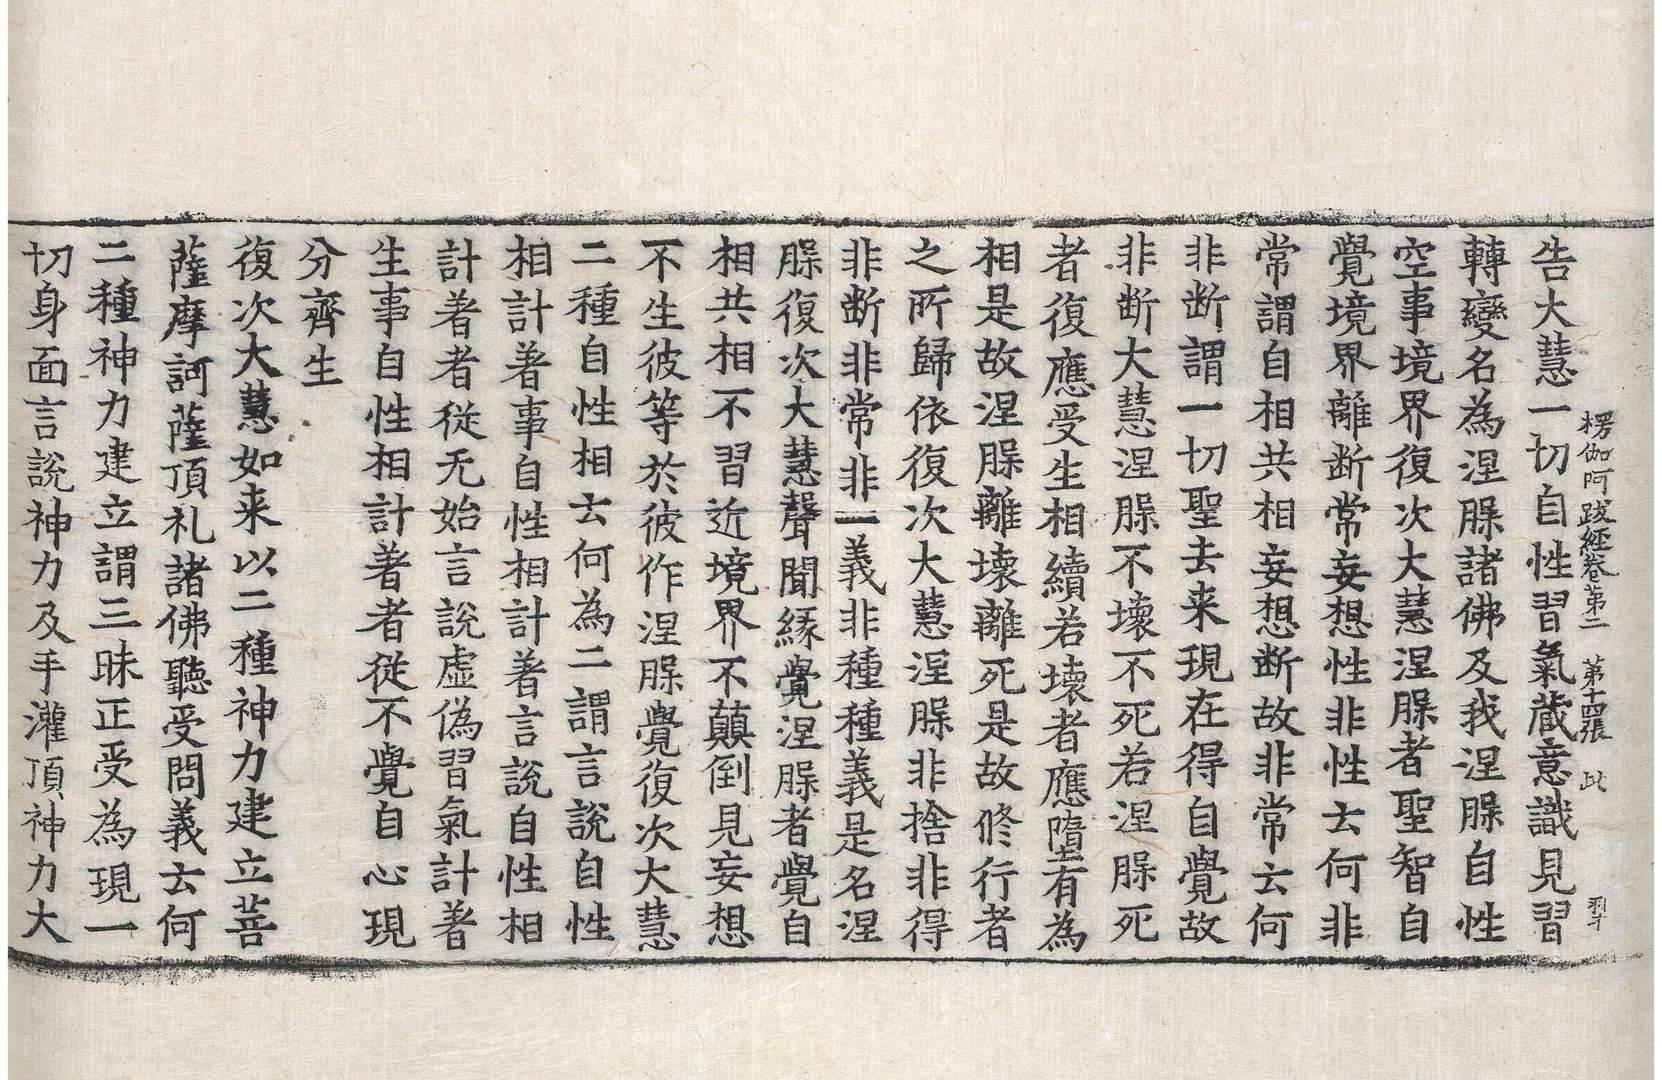 楞伽阿跋經卷第二 第十四張 此
告大慧一切自性習氣藏意識見習
轉變名為涅槃諸佛及我涅槃自性
空事境界復次大慧涅槃者聖智自
覺境界離斷常妄想性非性云何非
常謂自相共相妄想斷故非常云何
非斷謂一切聖去来現在得自覺故
非斷大慧涅槃不壞不死若涅槃死
者復應受生相續若壞者應墮有為
相是故涅槃離壞離死是故修行者
之所歸依復次大慧涅槃非捨非得
非斷非常非一義非種種義是名涅
槃復次大慧聲聞緣覺涅槃者覺自
相共相不習近境界不顛倒見妄想
不生彼等於彼作涅槃覺復次大慧
二種自性相云何為二謂言說自性
相計著事自性相計著言說自性相
計著者從无始言說虛偽習氣計著
生事自性相計著者從不覺自心現
分齊生
復次大慧如来以二種神力建立菩
薩摩訶薩頂礼諸佛聽受問義云何
二種神力建立謂三昧正受為現一
切身面言說神力及手灌頂神力大